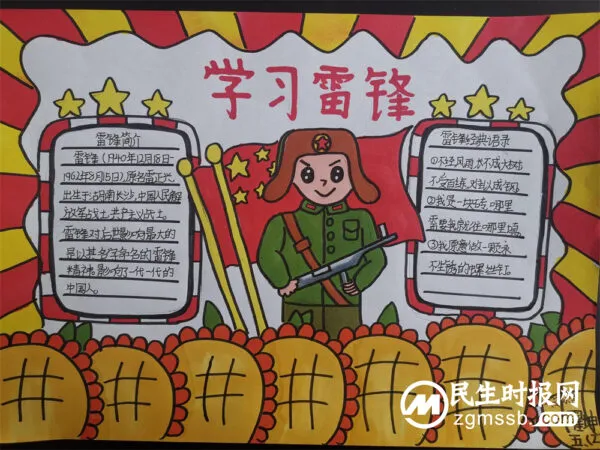 学习雷锋
雷锋简介
雷锋(1940年12月18日-
1962年8月15日),原名雷正兴,
出生于湖南长沙,中国人民解
放军战士,共产主义战士。
雷锋对后世影响最大的
是以其名字命名的雷锋
精神,影响了一代一代的
中国人。
雷锋经典语录
①不经风雨,长不成大树
不受百练,难以成钢
②我是一块砖,哪里
需要我就往哪里搬
③我愿意做一颗永
不生锈的螺丝钉。
民生时报网
zgmssb.com